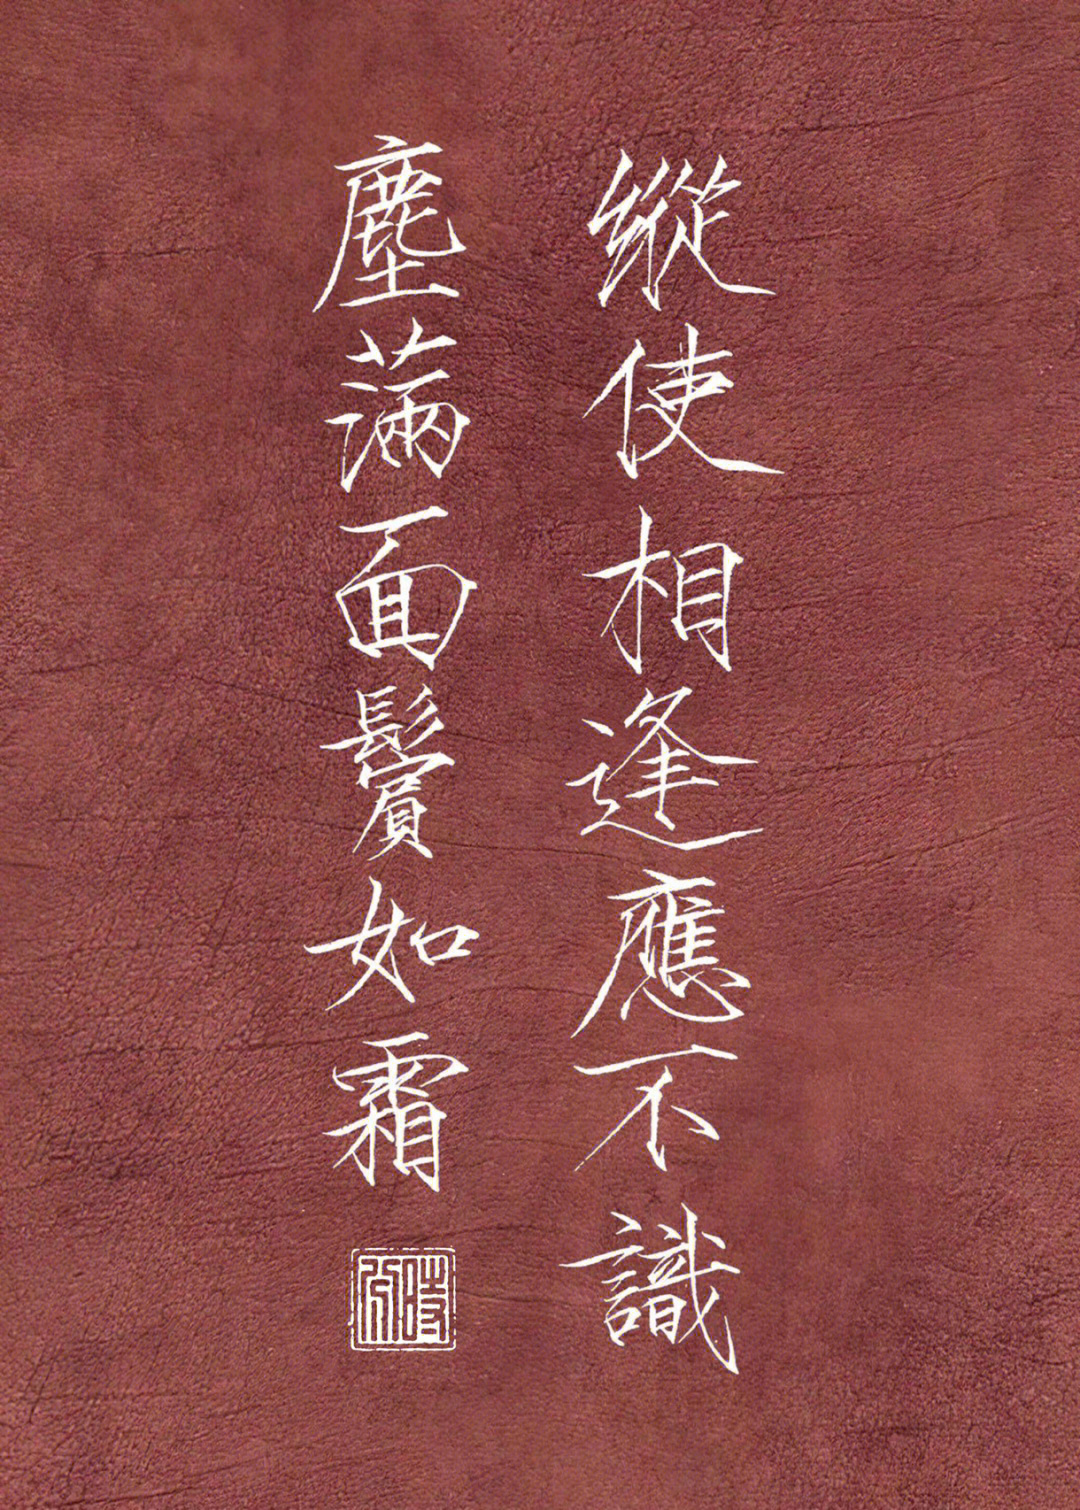 縱使相逢應不識
塵滿面鬢如霜